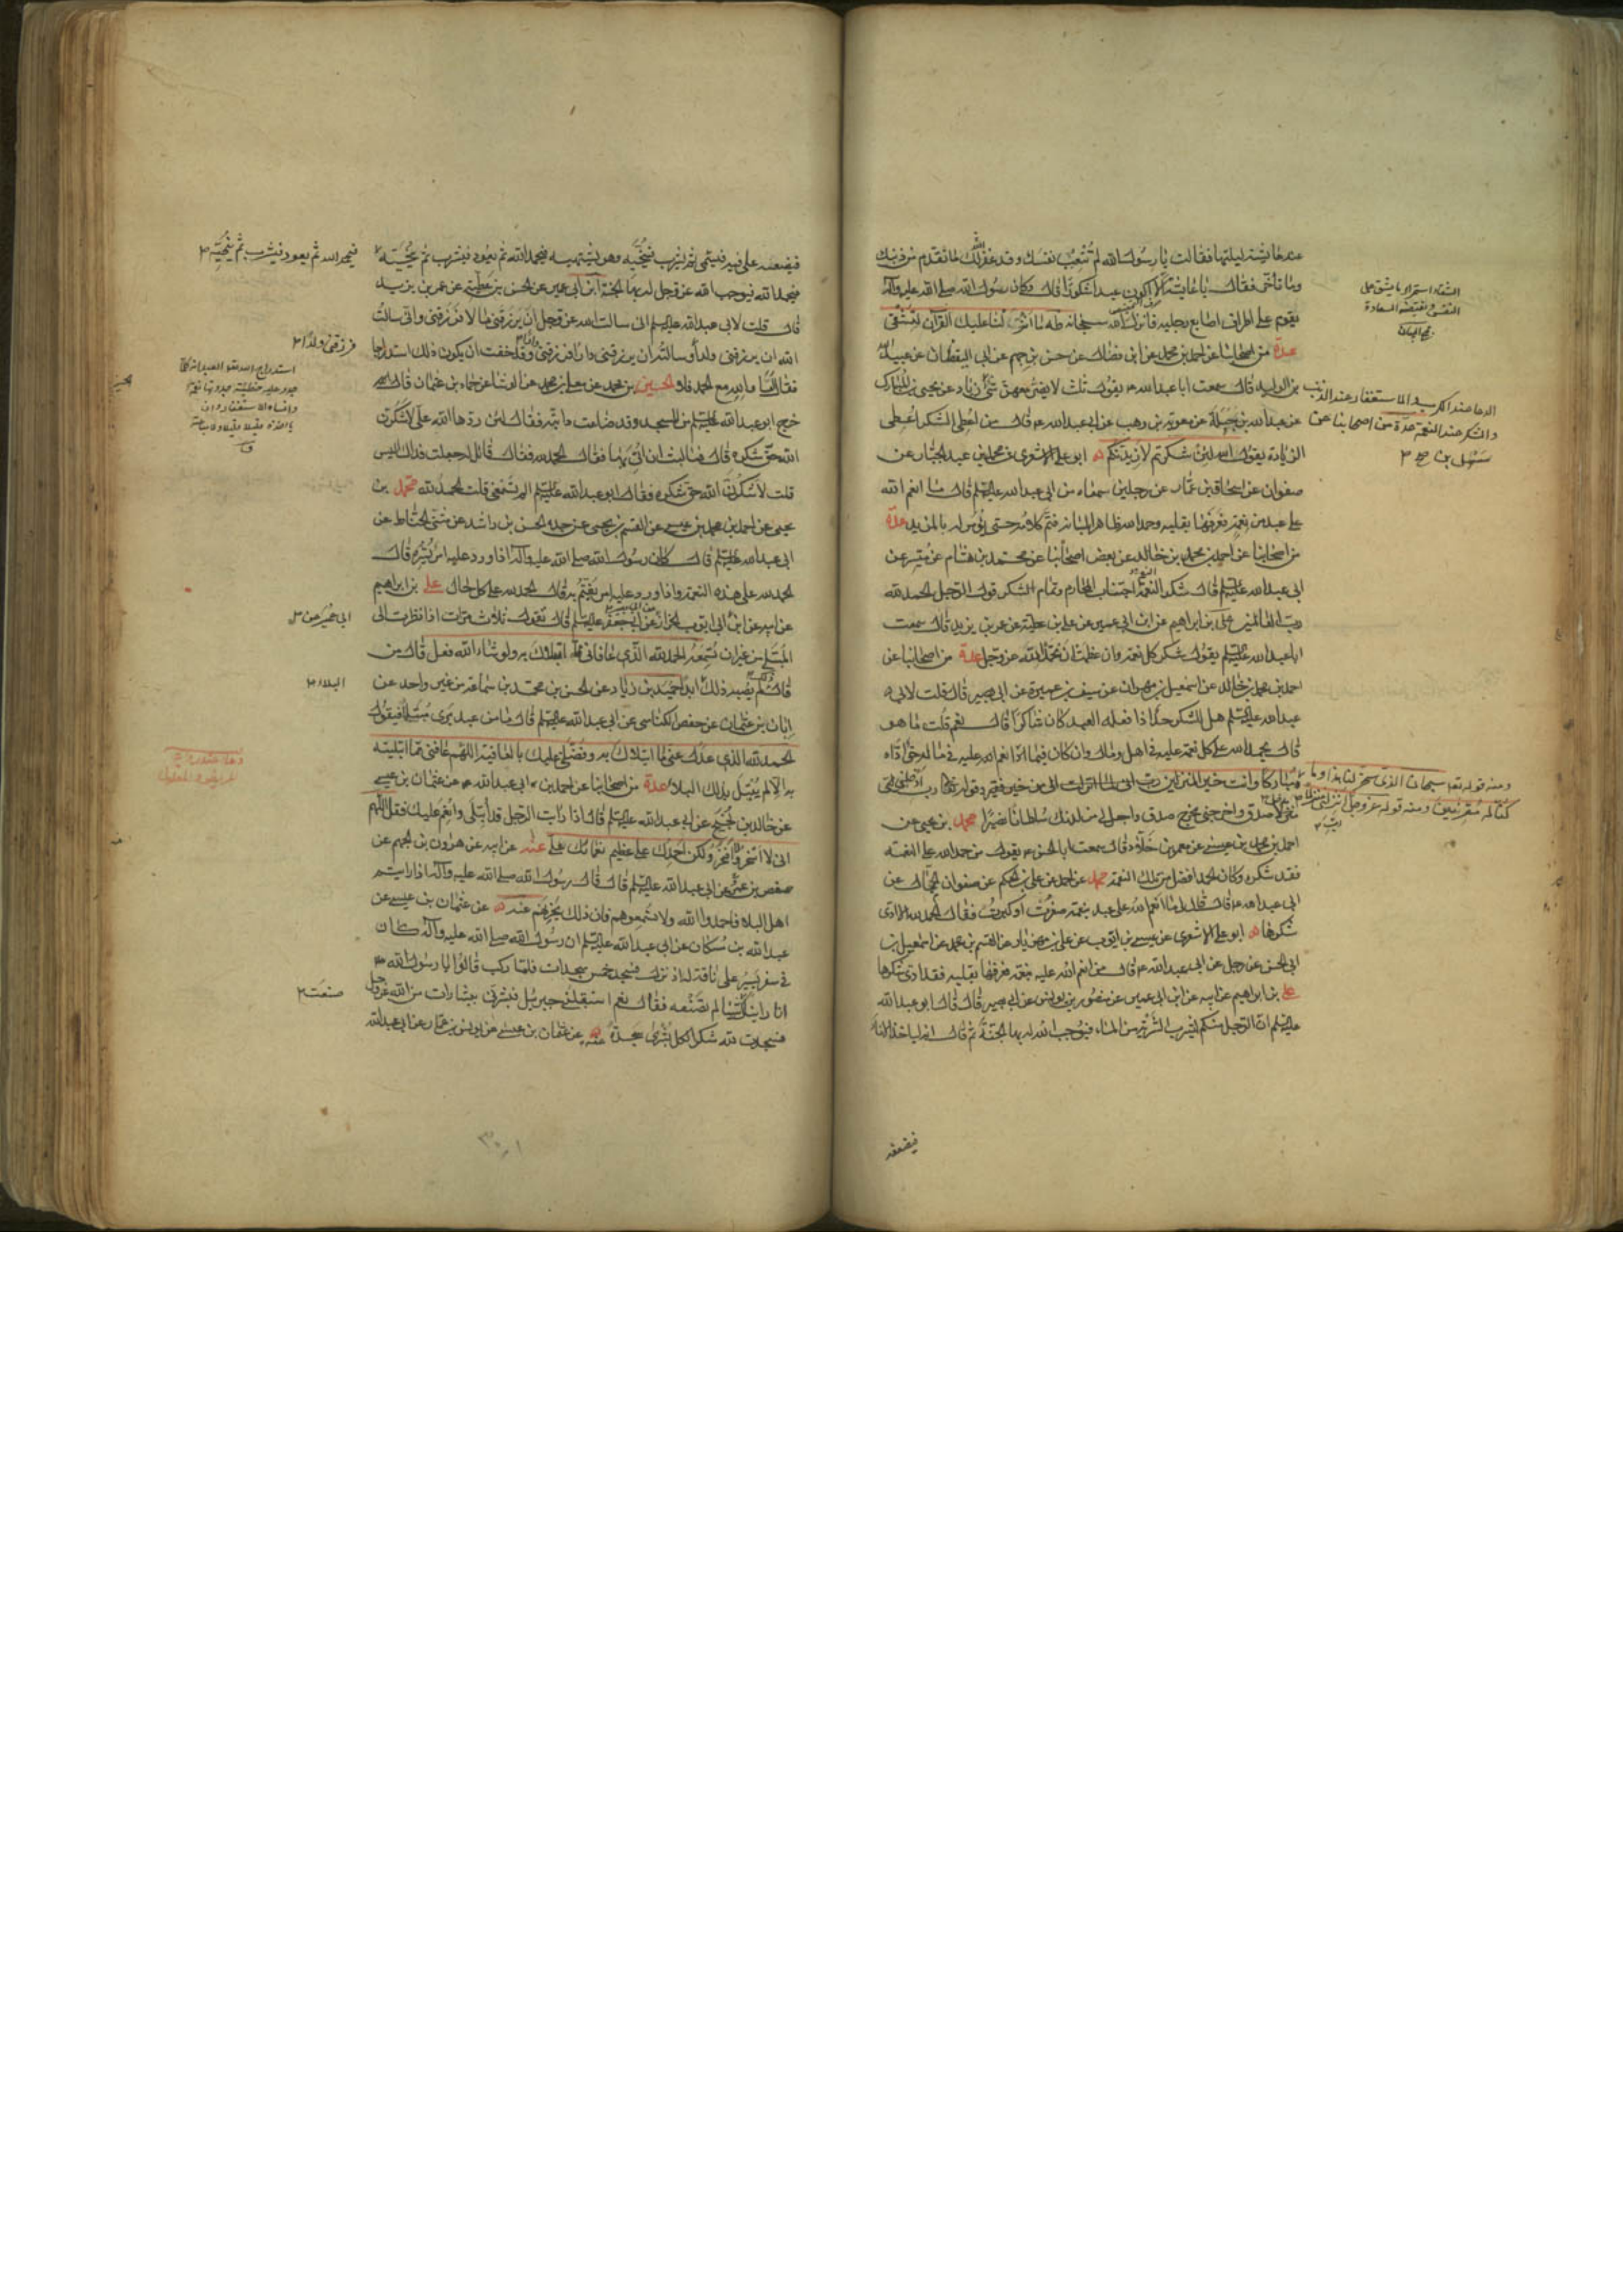 عند عايشة ليلتها فقالت يا رسول الله لم تتعب نفسك وقد غفر الله لك ما تقدم من ذنبك
وما تأخر فقال يا عايشة الا اكون عبدا شكورا قال وكان رسول الله صلى الله عليه وآله
يقوم على اطراف اصابع رجليه فانزل الله سبحانه طه ما انزلنا عليك القرآن لتشقى
عدة من اصحابنا عن احمد بن محمد عن ابن فضال عن حسن بن جهم عن ابى اليقظان عن عبيد الله
بن الوليد قال سمعت ابا عبد الله يقول ثلث لا يضر معهن شئ
الدعا عند الكرب والاستغفار عند الذنب
والشكر عند النعمة عدة من اصحابنا عن
سهل بن
زياد عن يحيى بن المبارك
عن عبد الله بن جبلة عن معوية بن وهب عن ابى عبد الله قال من اعطى الشكر اعطى
الزيادة يقول الله لئن شكرتم لأزيدنكم ابو على الاشعرى عن محمد بن عبد الجبار عن
صفوان عن اسحاق بن عمار عن رجلين سمعاه من ابى عبد الله عليه السلم قال ما انعم الله
على عبد من نعمة فعرفها بقلبه وحمد الله ظاهرا بلسانه فتم كلامه حتى يؤمر له بالمزيد عدة
من اصحابنا عن احمد بن محمد بن خالد عن بعض اصحابنا عن محمد بن هشام عن ميسر عن
ابى عبد الله عليه السلم قال شكر النعمة اجتناب المحارم وتمام الشكر قول الرجل الحمد لله
رب العالمين على بن ابراهيم عن ابن ابى عمير عن على بن عطية عن عمر بن يزيد قال سمعت
ابا عبد الله عليه السلم يقول شكر كل نعمة وان عظمت ان تحمد الله عز وجل عدة من اصحابنا عن
احمد بن محمد بن خالد عن اسمعيل بن مهران عن سيف بن عميرة عن ابى بصير قال قلت لابى
عبد الله عليه السلم هل للشكر حد اذا فعله العبد كان شاكرا قال نعم قلت ما هو
قال يحمد الله على كل نعمة عليه فى اهل ومال وان كان فيما انعم الله عليه فى ماله حق اداه
ومنه قوله تعالى سبحان الذى سخر لنا هذا وما
كنا له مقرنين ومنه قوله عز وجل انزلنى منزلا
مباركا وانت خير المنزلين رب انى لما انزلت الى من خير فقير وقوله رب ادخلنى
مدخل صدق واخرجنى مخرج صدق واجعل لى من لدنك سلطانا نصيرا محمد بن يحيى عن
احمد بن محمد بن عيسى عن معمر بن خلاد قال سمعت ابا الحسن يقول من حمد الله على النعمة
فقد شكره وكان الحمد افضل من تلك النعمة محمد عن احمد عن على بن الحكم عن صفوان الجمال عن
ابى عبد الله قال قال لى ما انعم الله على عبد بنعمة صغرت او كبرت فقال الحمد لله الا ادى
شكرها ابو على الاشعرى عن عيسى بن ايوب عن على بن مهزيار عن القسم بن محمد عن اسمعيل بن
ابى الحسن عن رجل عن ابى عبد الله قال من انعم الله عليه بنعمة فعرفها بقلبه فقد ادى شكرها
على بن ابراهيم عن ابيه عن ابن ابى عمير عن منصور بن يونس عن ابى بصير قال قال ابو عبد الله
عليه السلم ان الرجل منكم ليشرب الشربة من الماء فيوجب الله له بها الجنة ثم قال انه لياخذ الاناء
فيضعه
فيضعه على فيه فيسمى ثم يشرب فينحيه وهو يشتهيه فيحمد الله ثم يعود فيشرب ثم ينحيه
فيحمد الله ثم يعود فيشرب ثم ينحيه
فيحمد الله فيوجب الله عز وجل له بها الجنة ابن ابى عمير عن الحسن بن عطية عن عمر بن يزيد
قال قلت لابى عبد الله عليه السلم انى سالت الله عز وجل ان يرزقنى مالا فرزقنى وانى سالت
الله ان يرزقنى ولدا
فرزقنى ولدا
وسالته ان يرزقنى دارا فرزقنى وقد خفت ان يكون ذلك استدراجا
فقال اما والله مع الحمد فلا الحسين بن محمد عن معلى بن محمد عن الوشا عن حماد بن عثمان قال
خرج ابو عبد الله عليه السلم من المسجد وقد ضاعت دابته فقال لئن ردها الله على لاشكرن
الله حق شكره قال فما لبث ان اتى بها فقال الحمد لله فقال قائل له جعلت فداك اليس
قلت لاشكرن الله حق شكره فقال ابو عبد الله عليه السلم الم تسمعنى قلت الحمد لله محمد بن
يحيى عن احمد بن محمد بن عيسى عن القسم بن يحيى عن جده الحسن بن راشد عن مثنى الحناط عن
ابى عبد الله عليه السلم قال كان رسول الله صلى الله عليه وآله اذا ورد عليه امر يسره قال
الحمد لله على هذه النعمة واذا ورد عليه امر يغتم به قال الحمد لله على كل حال على بن ابراهيم
عن ابيه عن ابن
ابى عمير عن
ابى ايوب الخزاز عن ابى جعفر عليه السلم قال تقول ثلاث مرات اذا نظرت الى
المبتلى من غير ان تسمعه الحمد لله الذى عافانى مما ابتلاك به ولو شاء الله فعل قال من
قال ذلك لم يصبه ذلك
البلاء
ابدا حميد بن زياد عن الحسن بن محمد بن سماعة عن غير واحد عن
ابان بن عثمان عن حفص الكناسى عن ابى عبد الله عليه السلم قال ما من عبد يرى مبتلى فيقول
الحمد لله الذى عدل عنى ما ابتلاك به وفضلنى عليك بالعافية اللهم عافنى مما ابتليته
به الا لم يبتل بذلك البلاء عدة من اصحابنا عن احمد بن ابى عبد الله عن عثمان بن عيسى
عن خالد بن نجيح عن ابى عبد الله عليه السلم قال اذا رايت الرجل قد ابتلى وانعم عليك فقل اللهم
انى لا اسخر ولا افخر ولكن احمدك على عظيم نعمائك على عنه عن ابيه عن هرون بن الجهم عن
حفص بن عمر عن ابى عبد الله عليه السلم قال قال رسول الله صلى الله عليه وآله اذا رايتم
اهل البلاء فاحمدوا الله ولا تسمعوهم فان ذلك يحزنهم عنه عن عثمان بن عيسى عن
عبد الله بن مسكان عن ابى عبد الله عليه السلم ان رسول الله صلى الله عليه وآله كان
فى سفر يسير على ناقة له اذ نزل فسجد خمس سجدات فلما ركب قالوا يا رسول الله
انا رايناك
صنعت
شيئا لم تصنعه فقال نعم استقبلنى جبرئيل فبشرنى ببشارات من الله عز وجل
فسجدت لله شكرا لكل بشرى سجدة عنه عن عثمان بن عيسى عن يونس بن عمار عن ابى عبد الله